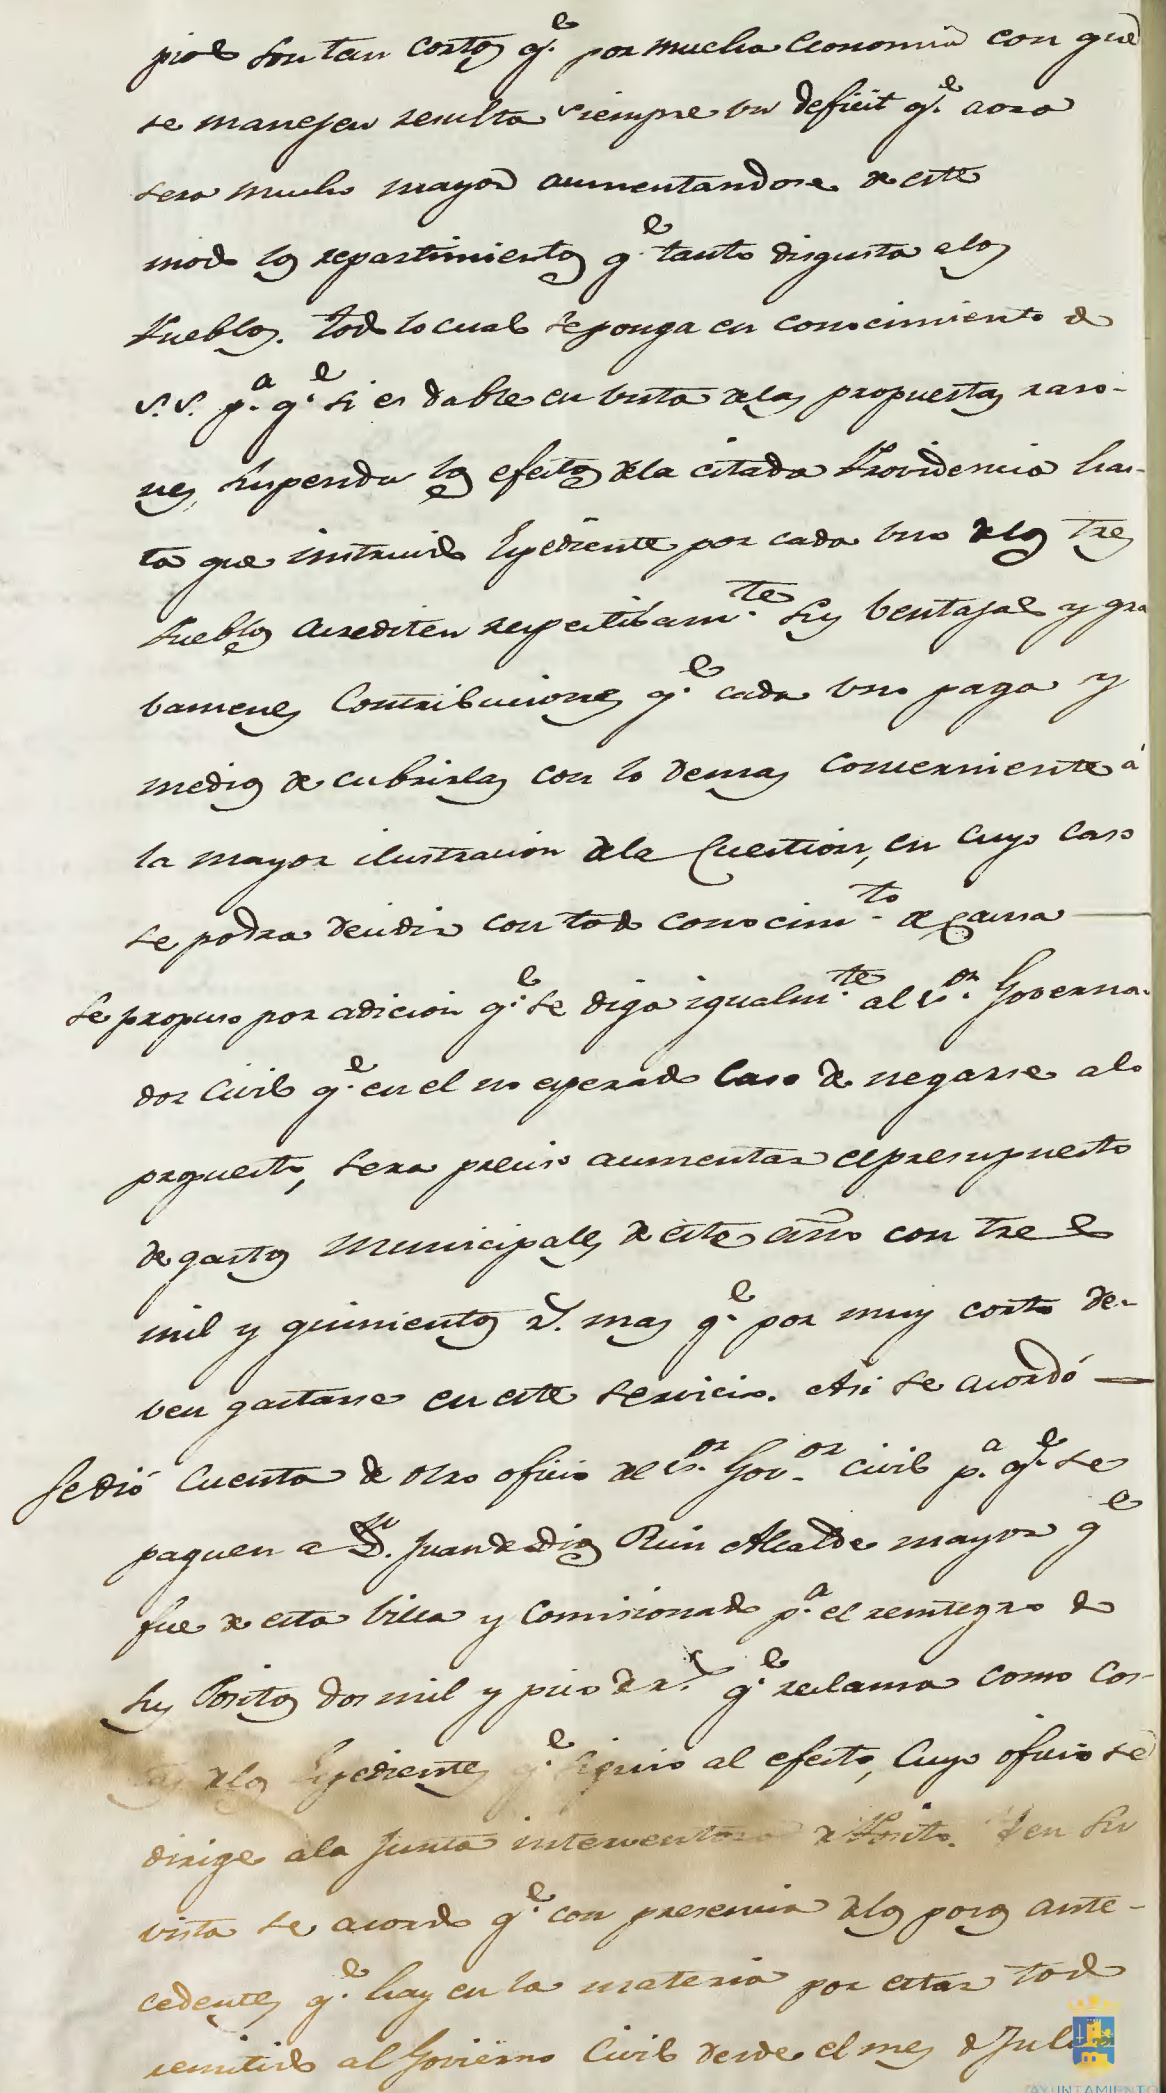 pios son tan cortos q.e por mucha economia con que
se manejen resulta siempre un deficit q.e aora
sera mucho mayor aumentandose de este
modo los repartimientos q.e tanto disgusta a los
Pueblos. Todo lo cual se ponga en conocimiento de
S.S. p.a q.e si es dable en vista de las propuestas raso-
nes, suspenda los efectos de la citada Providencia has-
ta que instruido Espediente por cada uno de los tres
Pueblos acrediten respectibam.te sus bentajas y gra
bamenes Contribuciones q.e cada uno paga y
medios de cubrirlas con lo demas concerniente á
la mayor ilustracion de la Cuestion, en cuyo caso
se podra decidir con todo conocim.to de causa
Se propuso por adicion q.e se diga igualm.te al S.or Governa-
dor Civil q.e en el no esperado caso de negarse a lo
propuesto, sera preciso aumentar el presupuesto
de gastos Municipales de este año con tres
mil y quinientos r.s mas q.e por muy corto de-
ven gastarse en este servicio. Asi se acordó
Se dió cuenta de otro oficio del S.or Gov.or civil p.a q.e se
paguen a D.n Juan de Dios Ruiz Alcalde mayor q.e
fue de esta Villa y Comisionado p.a el reintegro de
sus Positos dos mil y pico de r.s q.e reclama como cos-
tas de los Espedientes q.e siguio al efecto, cuyo oficio se
dirige a la Junta interventora de Positos. Y en su
vista se acordo q.e con presencia de los pocos ante-
cedentes q.e hay en la materia por estar todo
remitido al Govierno Civil desde el mes de Julio
AYUNTAMIENTO